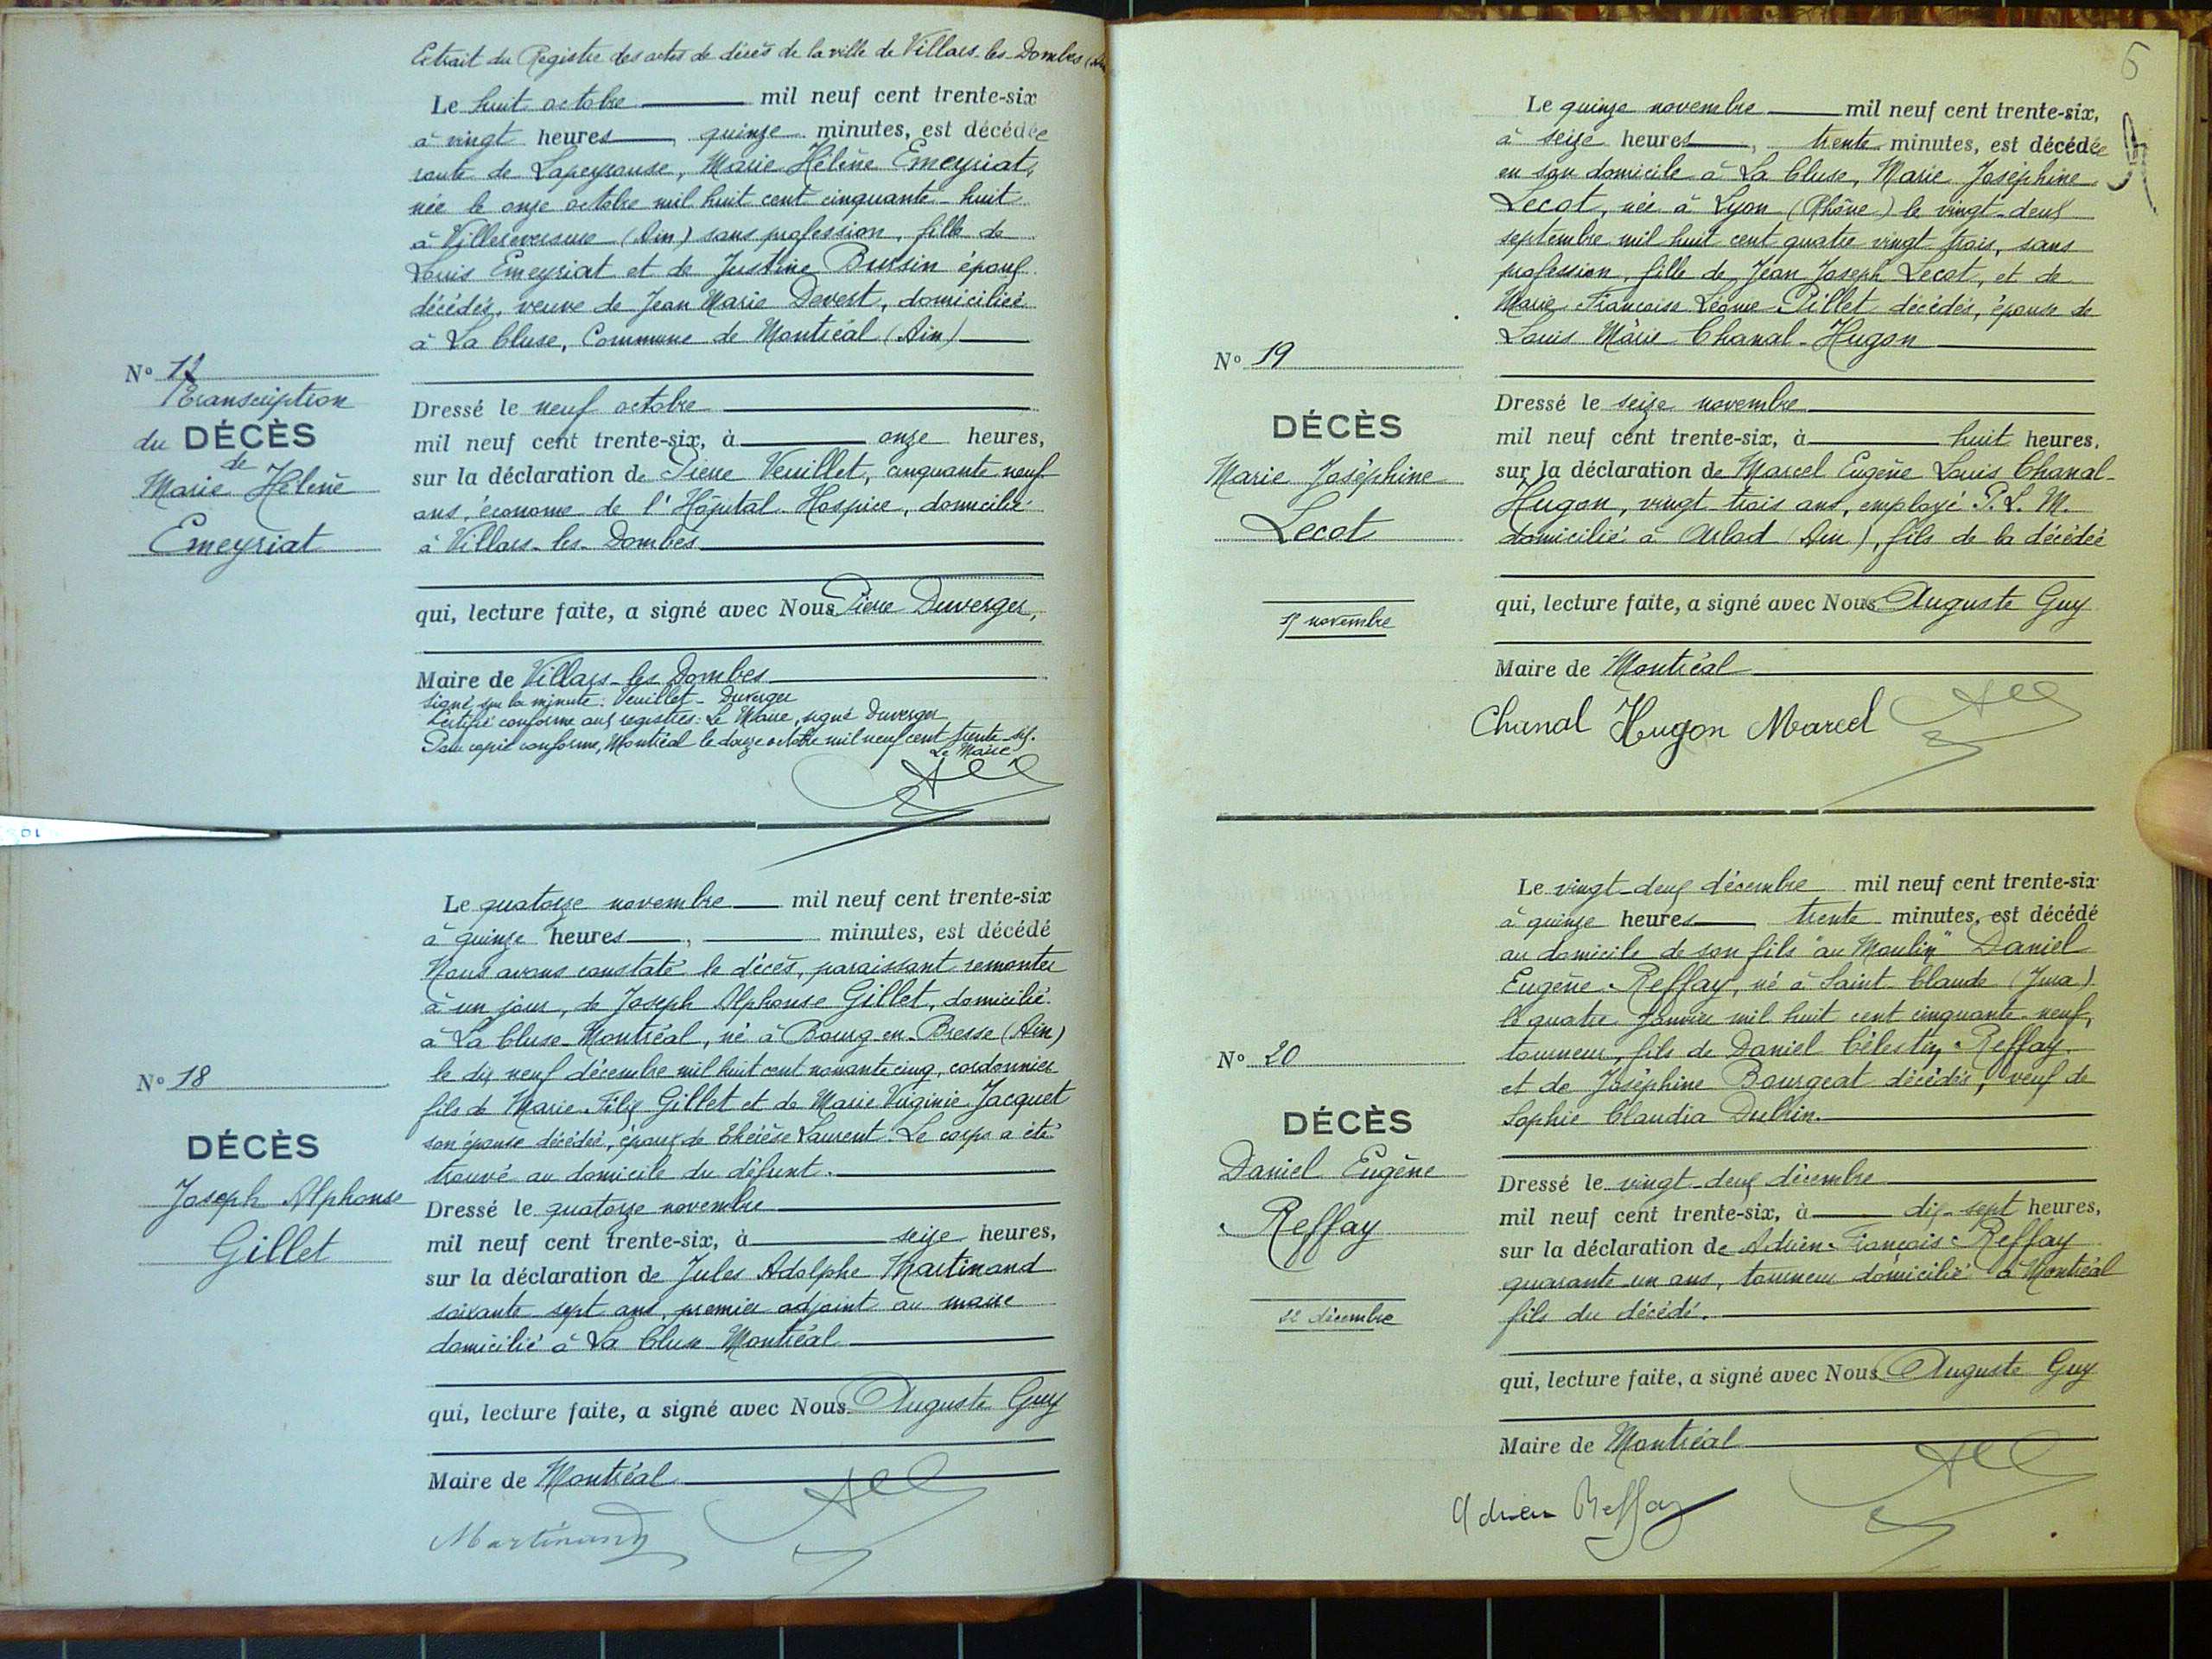 Extrait du Registre des actes de décès de la ville de Villars-les-Dombes
Le huit octobre mil neuf cent trente-six
à vingt heures, quinze minutes, est décédée
route de Lapeyrouse, Marie Hélène Emeyriat,
née le onze octobre mil huit cent cinquante-huit
à Villereversure (Ain) sans profession, fille de
Louis Emeyriat et de Justine Bursin époux
décédés, veuve de Jean Marie Devest, domiciliée
à La Cluse, Commune de Montréal (Ain)
N° 17
Transcription
du DÉCÈS
de
Marie Hélène
Emeyriat
Dressé le neuf octobre
mil neuf cent trente-six, à onze heures,
sur la déclaration de Pierre Veuillet, cinquante neuf
ans, économe de l'Hôpital-Hospice, domicilié
à Villars-les-Dombes
qui, lecture faite, a signé avec Nous Pierre Duverger,
Maire de Villars-les-Dombes
signé sur la minute: Veuillet - Duverger
Certifié conforme aux registres: Le Maire, signé Duverger
Pour copie conforme, Montréal le douze octobre mil neuf cent trente-six.
Le Maire
Le quatorze novembre mil neuf cent trente-six
à quinze heures, minutes, est décédé
Nous avons constaté le décès, paraissant remonter
à un jour, de Joseph Alphonse Gillet, domicilié
à La Cluse-Montréal, né à Bourg-en-Bresse (Ain)
le dix neuf décembre mil huit cent nonante cinq, cordonnier
fils de Marie-Félix Gillet et de Marie Virginie Jacquet
son épouse décédée, époux de Thérèse Laurent. Le corps a été
trouvé au domicile du défunt.
N° 18
DÉCÈS
Joseph Alphonse
Gillet
Dressé le quatorze novembre
mil neuf cent trente-six, à seize heures,
sur la déclaration de Jules Adolphe Martinand
soixante sept ans, premier adjoint au maire
domicilié à La Cluse Montréal
qui, lecture faite, a signé avec Nous Auguste Guy
Maire de Montréal
Martinand
6
Le quinze novembre mil neuf cent trente-six,
à seize heures, trente minutes, est décédée
en son domicile à La Cluse, Marie Joséphine
Lecot, née à Lyon (Rhône) le vingt-deux
septembre mil huit cent quatre vingt trois, sans
profession, fille de Jean Joseph Lecot, et de
Marie Françoise Léonie Pillet décédés, épouse de
Louis Marie Chanal-Hugon
N° 19
DÉCÈS
Marie Joséphine
Lecot
novembre
Dressé le seize novembre
mil neuf cent trente-six, à huit heures,
sur la déclaration de Marcel Eugène Louis Chanal-
Hugon, vingt trois ans, employé P. L. M.
domicilié à Arlod (Ain), fils de la décédée
qui, lecture faite, a signé avec Nous Auguste Guy
Maire de Montréal
Chanal Hugon Marcel
Le vingt-deux décembre mil neuf cent trente-six
à quinze heures trente minutes, est décédé
au domicile de son fils "au Moulin" Daniel
Eugène Reffay, né à Saint-Claude (Jura)
le quatre Janvier mil huit cent cinquante-neuf,
tourneur, fils de Daniel Célestin Reffay
et de Joséphine Bourgeat décédés, veuf de
Sophie Claudia Dubin.
N° 20
DÉCÈS
Daniel Eugène
Reffay
22 décembre
Dressé le vingt-deux décembre
mil neuf cent trente-six, à dix-sept heures,
sur la déclaration de Adrien-François Reffay
quarante un ans, tourneur domicilié à Montréal
fils du décédé.
qui, lecture faite, a signé avec Nous Auguste Guy
Maire de Montréal
Adrien Reffay